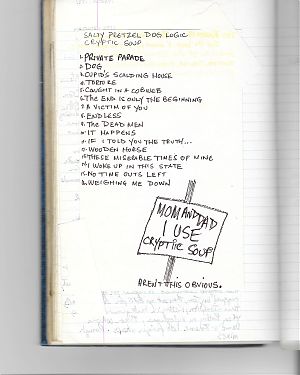 SALTY PRETZEL DOG LOGIC
CRYPTIC SOUP
1. PRIVATE PARADE
2. DOG
3. CUPID'S SCALDING HOUSE
4. TORTURE
5. CAUGHT IN A COBWEB
6. THE END IS ONLY THE BEGINNING
7. A VICTIM OF YOU
8. ENDLESS
9. THE DEAD MEN
10. IT HAPPENS
11. IF I TOLD YOU THE TRUTH...
12. WOODEN HORSE
13. THESE MISERABLE TIMES OF MINE
14. I WOKE UP IN THIS STATE
15. NO TIME OUTS LEFT
16. WEIGHING ME DOWN
MOM AND DAD
I USE
CRYPTIC SOUP
AREN'T THIS OBVIOUS.